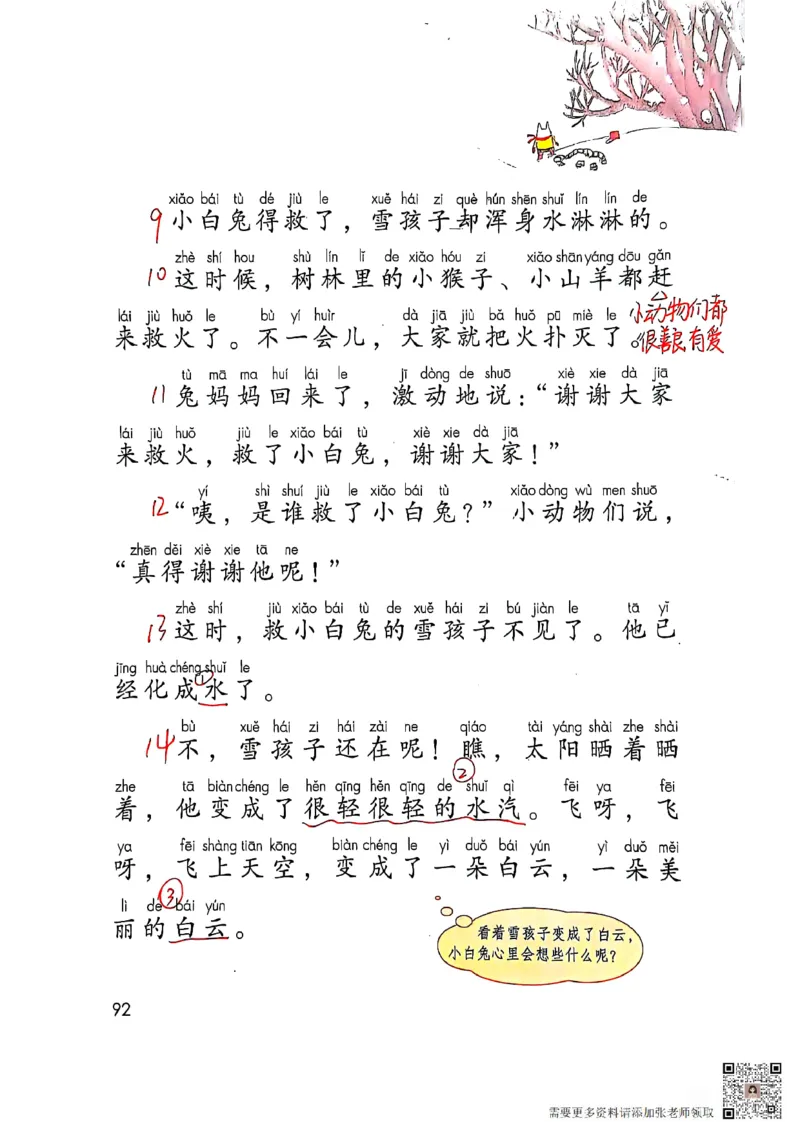 xiǎo bái tù dé jiù le xuě hái zi què hún shēn shuǐ lín lín de
9 小白兔得救了，雪孩子却浑身水淋淋的。
zhè shí hou shù lín lǐ de xiǎo hóu zi xiǎo shān yáng dōu gǎn
10 这时候，树林里的小猴子、小山羊都赶
lái jiù huǒ le bù yí huìr dà jiā jiù bǎ huǒ pū miè le 小动物们都
来救火了。不一会儿，大家就把火扑灭了。很善良有爱
tù mā ma huí lái le jī dòng de shuō xiè xie dà jiā
11 兔妈妈回来了，激动地说：“谢谢大家
lái jiù huǒ jiù le xiǎo bái tù xiè xie dà jiā
来救火，救了小白兔，谢谢大家！”
yí shì shuí jiù le xiǎo bái tù xiǎo dòng wù men shuō
12 “咦，是谁救了小白兔？”小动物们说，
zhēn děi xiè xie tā ne
“真得谢谢他呢！”
zhè shí jiù xiǎo bái tù de xuě hái zi bú jiàn le tā yǐ
13 这时，救小白兔的雪孩子不见了。他已
jīng huà chéng shuǐ le
①
经化成水了。
bù xuě hái zi hái zài ne qiáo tài yáng shài zhe shài
14 不，雪孩子还在呢！瞧，太阳晒着晒
②
zhe tā biàn chéng le hěn qīng hěn qīng de shuǐ qì fēi ya fēi
着，他变成了很轻很轻的水汽。飞呀，飞
ya fēi shàng tiān kōng biàn chéng le yì duǒ bái yún yì duǒ měi
呀，飞上天空，变成了一朵白云，一朵美
③
lì de bái yún
丽的白云。
看着雪孩子变成了白云，
小白兔心里会想些什么呢？
92
需要更多资料请添加张老师领取